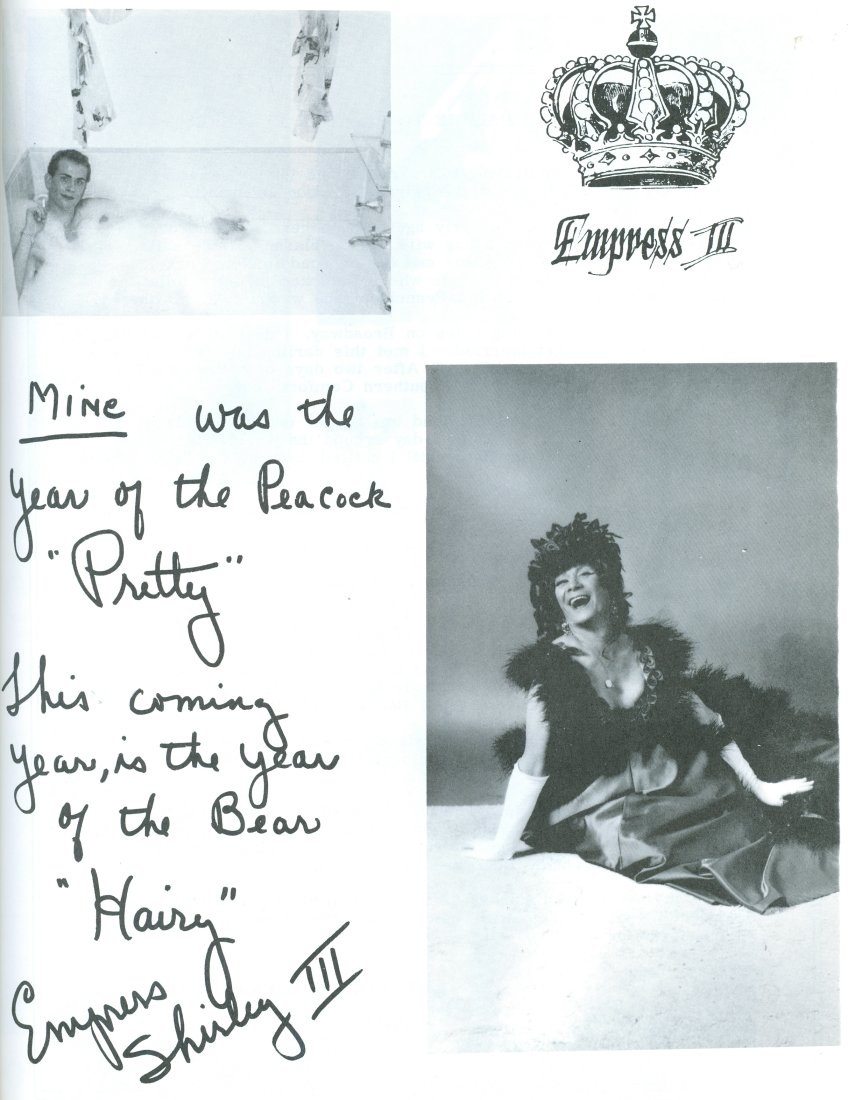 Empress III
Mine was the
year of the Peacock
"Pretty"
This coming
year, is the year
of the Bear
"Hairy"
Empress
Shirley III